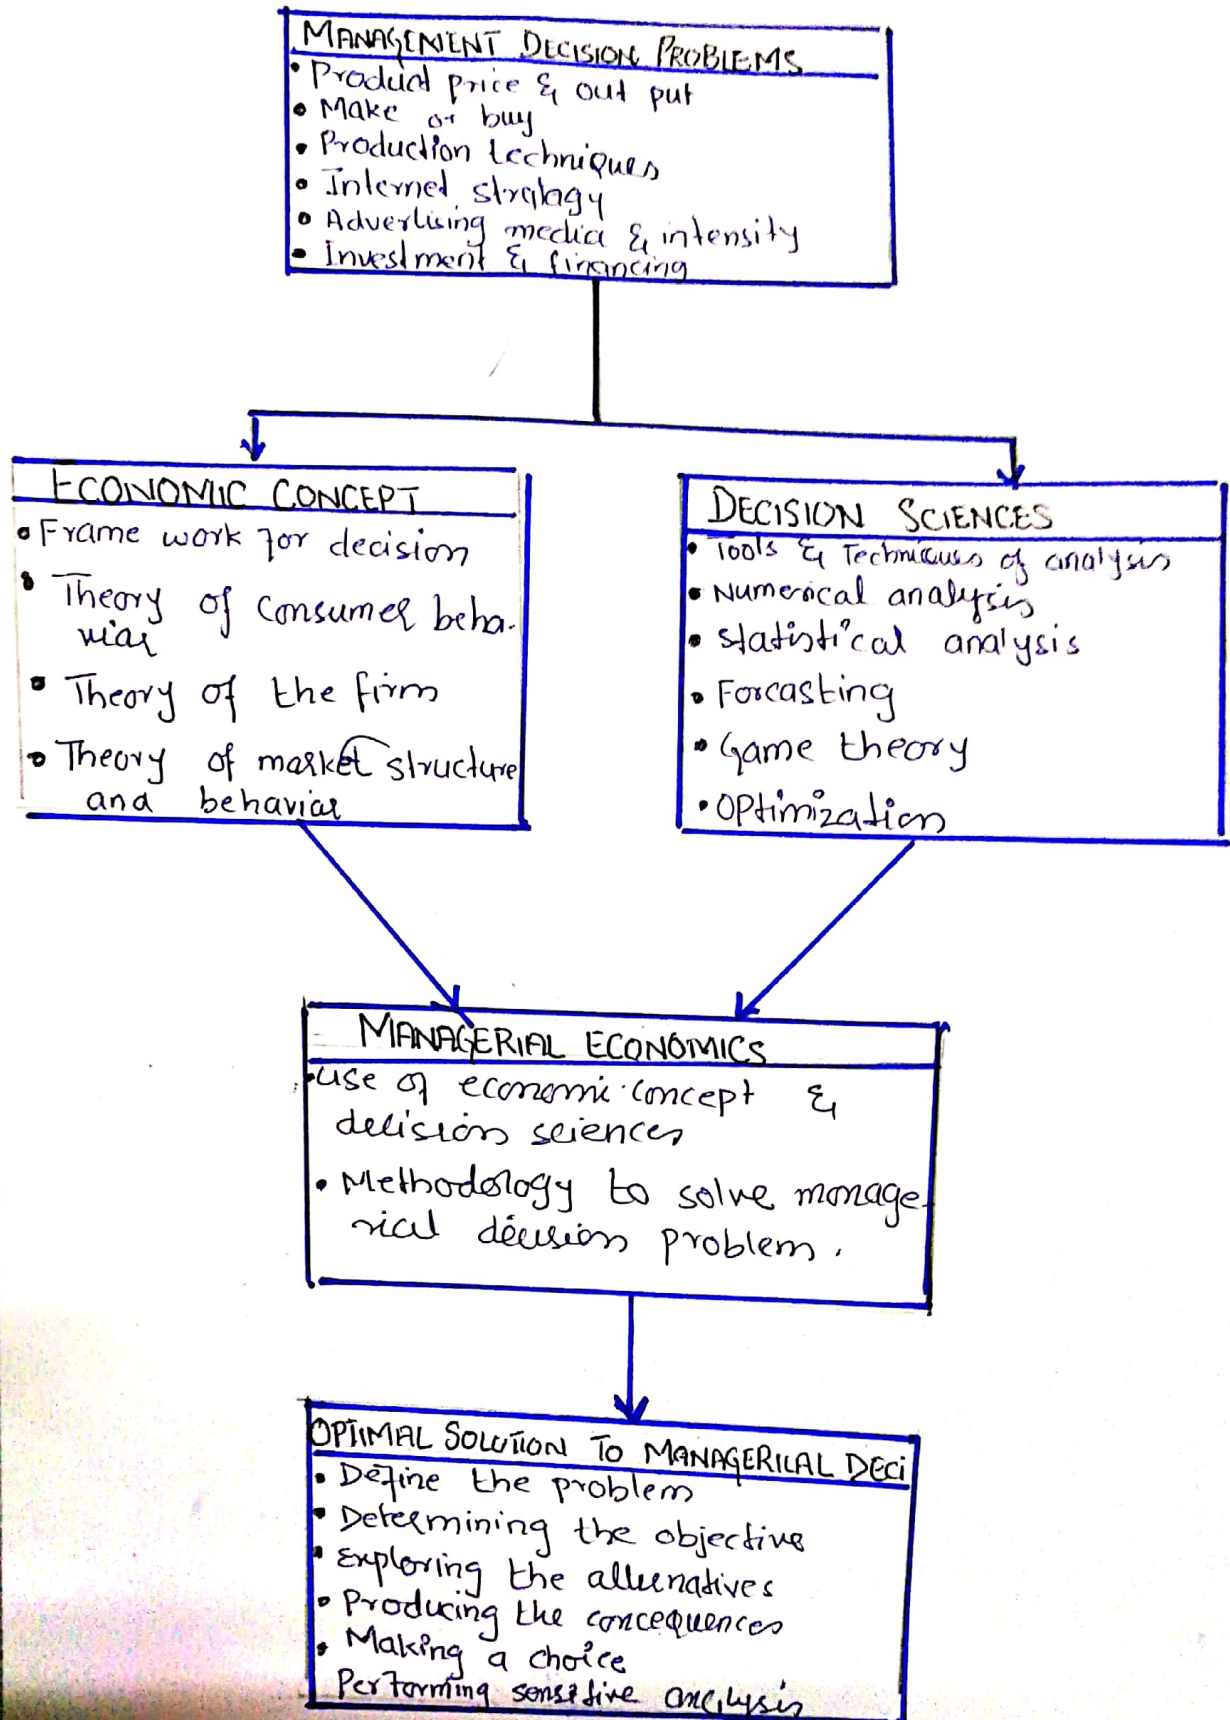 MANAGEMENT DECISION PROBLEMS
• Product price & out put
• Make or buy
• Production techniques
• Internet stratagy
• Advertising media & intensity
• Investment & financing
ECONOMIC CONCEPT
• Frame work for decision
• Theory of consumer beha-
viar
• Theory of the firm
• Theory of market structure
and behaviar
DECISION SCIENCES
• Tools & Techniques of analysis
• Numerical analysis
• Statistical analysis
• Forcasting
• Game theory
• OPtimization
MANAGERIAL ECONOMICS
• use of economic concept &
decision sciences
• Methodology to solve manage-
rial decision problem.
OPTIMAL SOLUTION TO MANAGERILAL DECI
• Define the problem
• Determining the objective
• Exploring the alternatives
• Producing the concequences
• Making a choice
Performing sensitive analysis